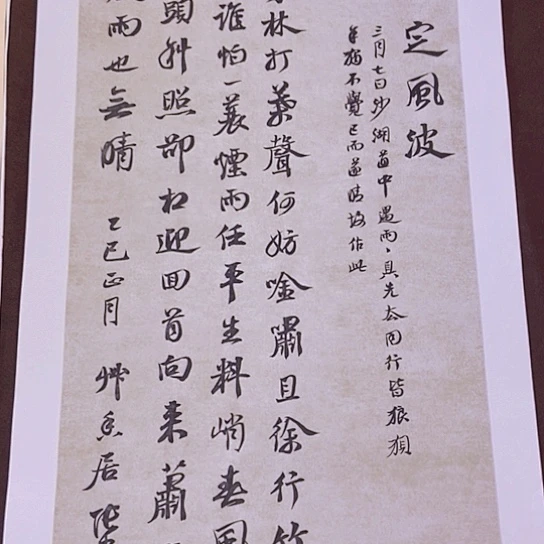 定風波
三月七日沙湖道中遇雨、具先太同行皆狼狽
余獨不覺已而遂晴故作此
林打葉聲何妨唫嘯且徐行竹
誰怕一蓑煙雨任平生料峭春風
頭斜照卻相迎回首向來蕭
風雨也無晴 乙巳正月 艸堂居